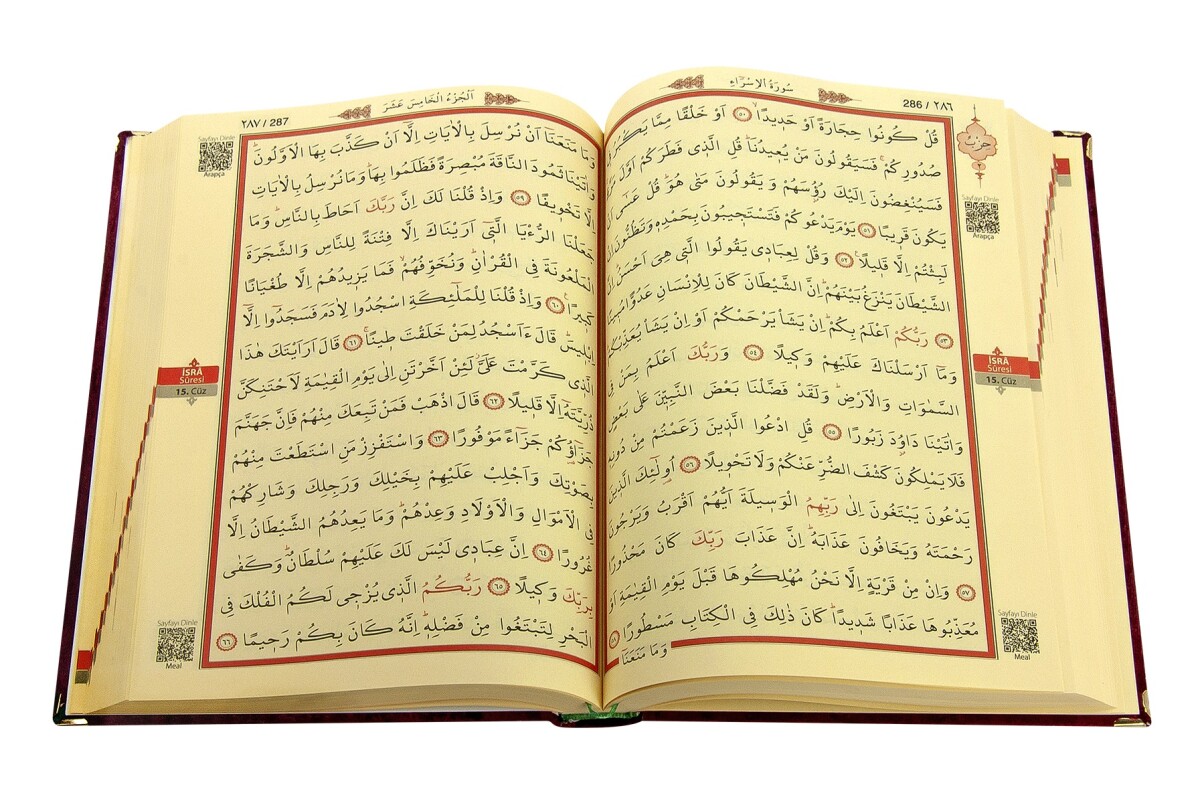 ٢٨٦ / 286
سُورَةُ الْاِسْرَاءِ
حزب
Sayfayı Dinle
Arapça
قُلْ كُونُوا حِجَارَةً اَوْ حَدِيدًاۙ ٥٠ اَوْ خَلْقًا مِمَّا يَكْبُرُ فِي
صُدُورِكُمْۚ فَسَيَقُولُونَ مَنْ يُعِيدُنَاۜ قُلِ الَّذِي فَطَرَكُمْ اَوَّلَ
فَسَيُنْغِضُونَ اِلَيْكَ رُؤُسَهُمْ وَيَقُولُونَ مَتٰى هُوَۜ قُلْ عَسٰٓى
يَكُونَ قَرِيبًا ٥١ يَوْمَ يَدْعُوكُمْ فَتَسْتَجِيبُونَ بِحَمْدِهٖ وَتَظُنُّونَ
لَبِثْتُمْ اِلَّا قَلِيلًا۟ ٥٢ وَقُلْ لِعِبَادِي يَقُولُوا الَّتِي هِيَ اَحْسَنُۜ
الشَّيْطَانَ يَنْزَغُ بَيْنَهُمْۜ اِنَّ الشَّيْطَانَ كَانَ لِلْاِنْسَانِ عَدُوًّا مُبِينًا
٥٣ رَبُّكُمْ اَعْلَمُ بِكُمْۜ اِنْ يَشَأْ يَرْحَمْكُمْ اَوْ اِنْ يَشَأْ يُعَذِّبْكُمْۜ
وَمَٓا اَرْسَلْنَاكَ عَلَيْهِمْ وَكِيلًا ٥٤ وَرَبُّكَ اَعْلَمُ بِمَنْ فِي
السَّمٰوَاتِ وَالْاَرْضِۜ وَلَقَدْ فَضَّلْنَا بَعْضَ النَّبِيّٖنَ عَلٰى بَعْضٍ
وَاٰتَيْنَا دَاوُ۫دَ زَبُورًا ٥٥ قُلِ ادْعُوا الَّذِينَ زَعَمْتُمْ مِنْ دُونِهٖ
فَلَا يَمْلِكُونَ كَشْفَ الضُّرِّ عَنْكُمْ وَلَا تَحْوِيلًا ٥٦ اُو۬لٰٓئِكَ الَّذِينَ
يَدْعُونَ يَبْتَغُونَ اِلٰى رَبِّهِمُ الْوَسِيلَةَ اَيُّهُمْ اَقْرَبُ وَيَرْجُونَ
رَحْمَتَهُ وَيَخَافُونَ عَذَابَهُۜ اِنَّ عَذَابَ رَبِّكَ كَانَ مَحْذُورًا
٥٧ وَاِنْ مِنْ قَرْيَةٍ اِلَّا نَحْنُ مُهْلِكُوهَا قَبْلَ يَوْمِ الْقِيٰمَةِ اَوْ
مُعَذِّبُوهَا عَذَابًا شَدِيدًاۜ كَانَ ذٰلِكَ فِي الْكِتَابِ مَسْطُورًا ٥٨
وَمَا مَنَعَنَا
İSRÂ
Sûresi
15. Cüz
Sayfayı Dinle
Meal
٢٨٧ / 287
اَلْجُزْءُ الْخَامِسَ عَشَرَ
Sayfayı Dinle
Arapça
وَمَا مَنَعَنَٓا اَنْ نُرْسِلَ بِالْاٰيَاتِ اِلَّٓا اَنْ كَذَّبَ بِهَا الْاَوَّلُونَۜ
وَاٰتَيْنَا ثَمُودَ النَّاقَةَ مُبْصِرَةً فَظَلَمُوا بِهَاۜ وَمَا نُرْسِلُ بِالْاٰيَاتِ
اِلَّا تَخْوِيفًا ٥٩ وَاِذْ قُلْنَا لَكَ اِنَّ رَبَّكَ اَحَاطَ بِالنَّاسِۜ وَمَا
جَعَلْنَا الرُّءْيَا الَّتِٓي اَرَيْنَاكَ اِلَّا فِتْنَةً لِلنَّاسِ وَالشَّجَرَةَ
الْمَلْعُونَةَ فِي الْقُرْاٰنِۜ وَنُخَوِّفُهُمْۙ فَمَا يَزِيدُهُمْ اِلَّا طُغْيَانًا
كَبِيرًا۟ ٦٠ وَاِذْ قُلْنَا لِلْمَلٰٓئِكَةِ اسْجُدُوا لِاٰدَمَ فَسَجَدُٓوا اِلَّٓا
اِبْلِيسَۜ قَالَ ءَاَسْجُدُ لِمَنْ خَلَقْتَ طِينًاۚ ٦١ قَالَ اَرَاَيْتَكَ هٰذَا
الَّذِي كَرَّمْتَ عَلَيَّۘ لَئِنْ اَخَّرْتَنِ اِلٰى يَوْمِ الْقِيٰمَةِ لَاَحْتَنِكَنَّ
ذُرِّيَّتَهُٓ اِلَّا قَلِيلًا ٦٢ قَالَ اذْهَبْ فَمَنْ تَبِعَكَ مِنْهُمْ فَاِنَّ جَهَنَّمَ
جَزَٓاؤُ۬كُمْ جَزَٓاءً مَوْفُورًا ٦٣ وَاسْتَفْزِزْ مَنِ اسْتَطَعْتَ مِنْهُمْ
بِصَوْتِكَ وَاَجْلِبْ عَلَيْهِمْ بِخَيْلِكَ وَرَجِلِكَ وَشَارِكْهُمْ
فِي الْاَمْوَالِ وَالْاَوْلَادِ وَعِدْهُمْۜ وَمَا يَعِدُهُمُ الشَّيْطَانُ اِلَّا
غُرُورًا ٦٤ اِنَّ عِبَادِي لَيْسَ لَكَ عَلَيْهِمْ سُلْطَانٌۜ وَكَفٰى
بِرَبِّكَ وَكِيلًا ٦٥ رَبُّكُمُ الَّذِي يُزْجِي لَكُمُ الْفُلْكَ فِي
الْبَحْرِ لِتَبْتَغُوا مِنْ فَضْلِهٖۜ اِنَّهُ كَانَ بِكُمْ رَحِيمًا ٦٦
İSRÂ
Sûresi
15. Cüz
Sayfayı Dinle
Meal